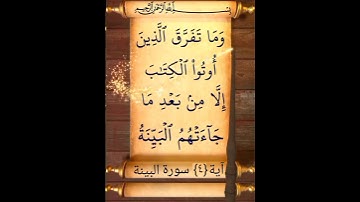 بسم الله الرحمن الرحيم
وَمَا تَفَرَّقَ ٱلَّذِينَ
أُوتُوا۟ ٱلْكِتَٰبَ
إِلَّا مِنۢ بَعْدِ مَا
جَآءَتْهُمُ ٱلْبَيِّنَةُ
آية {٤} سورة البينة